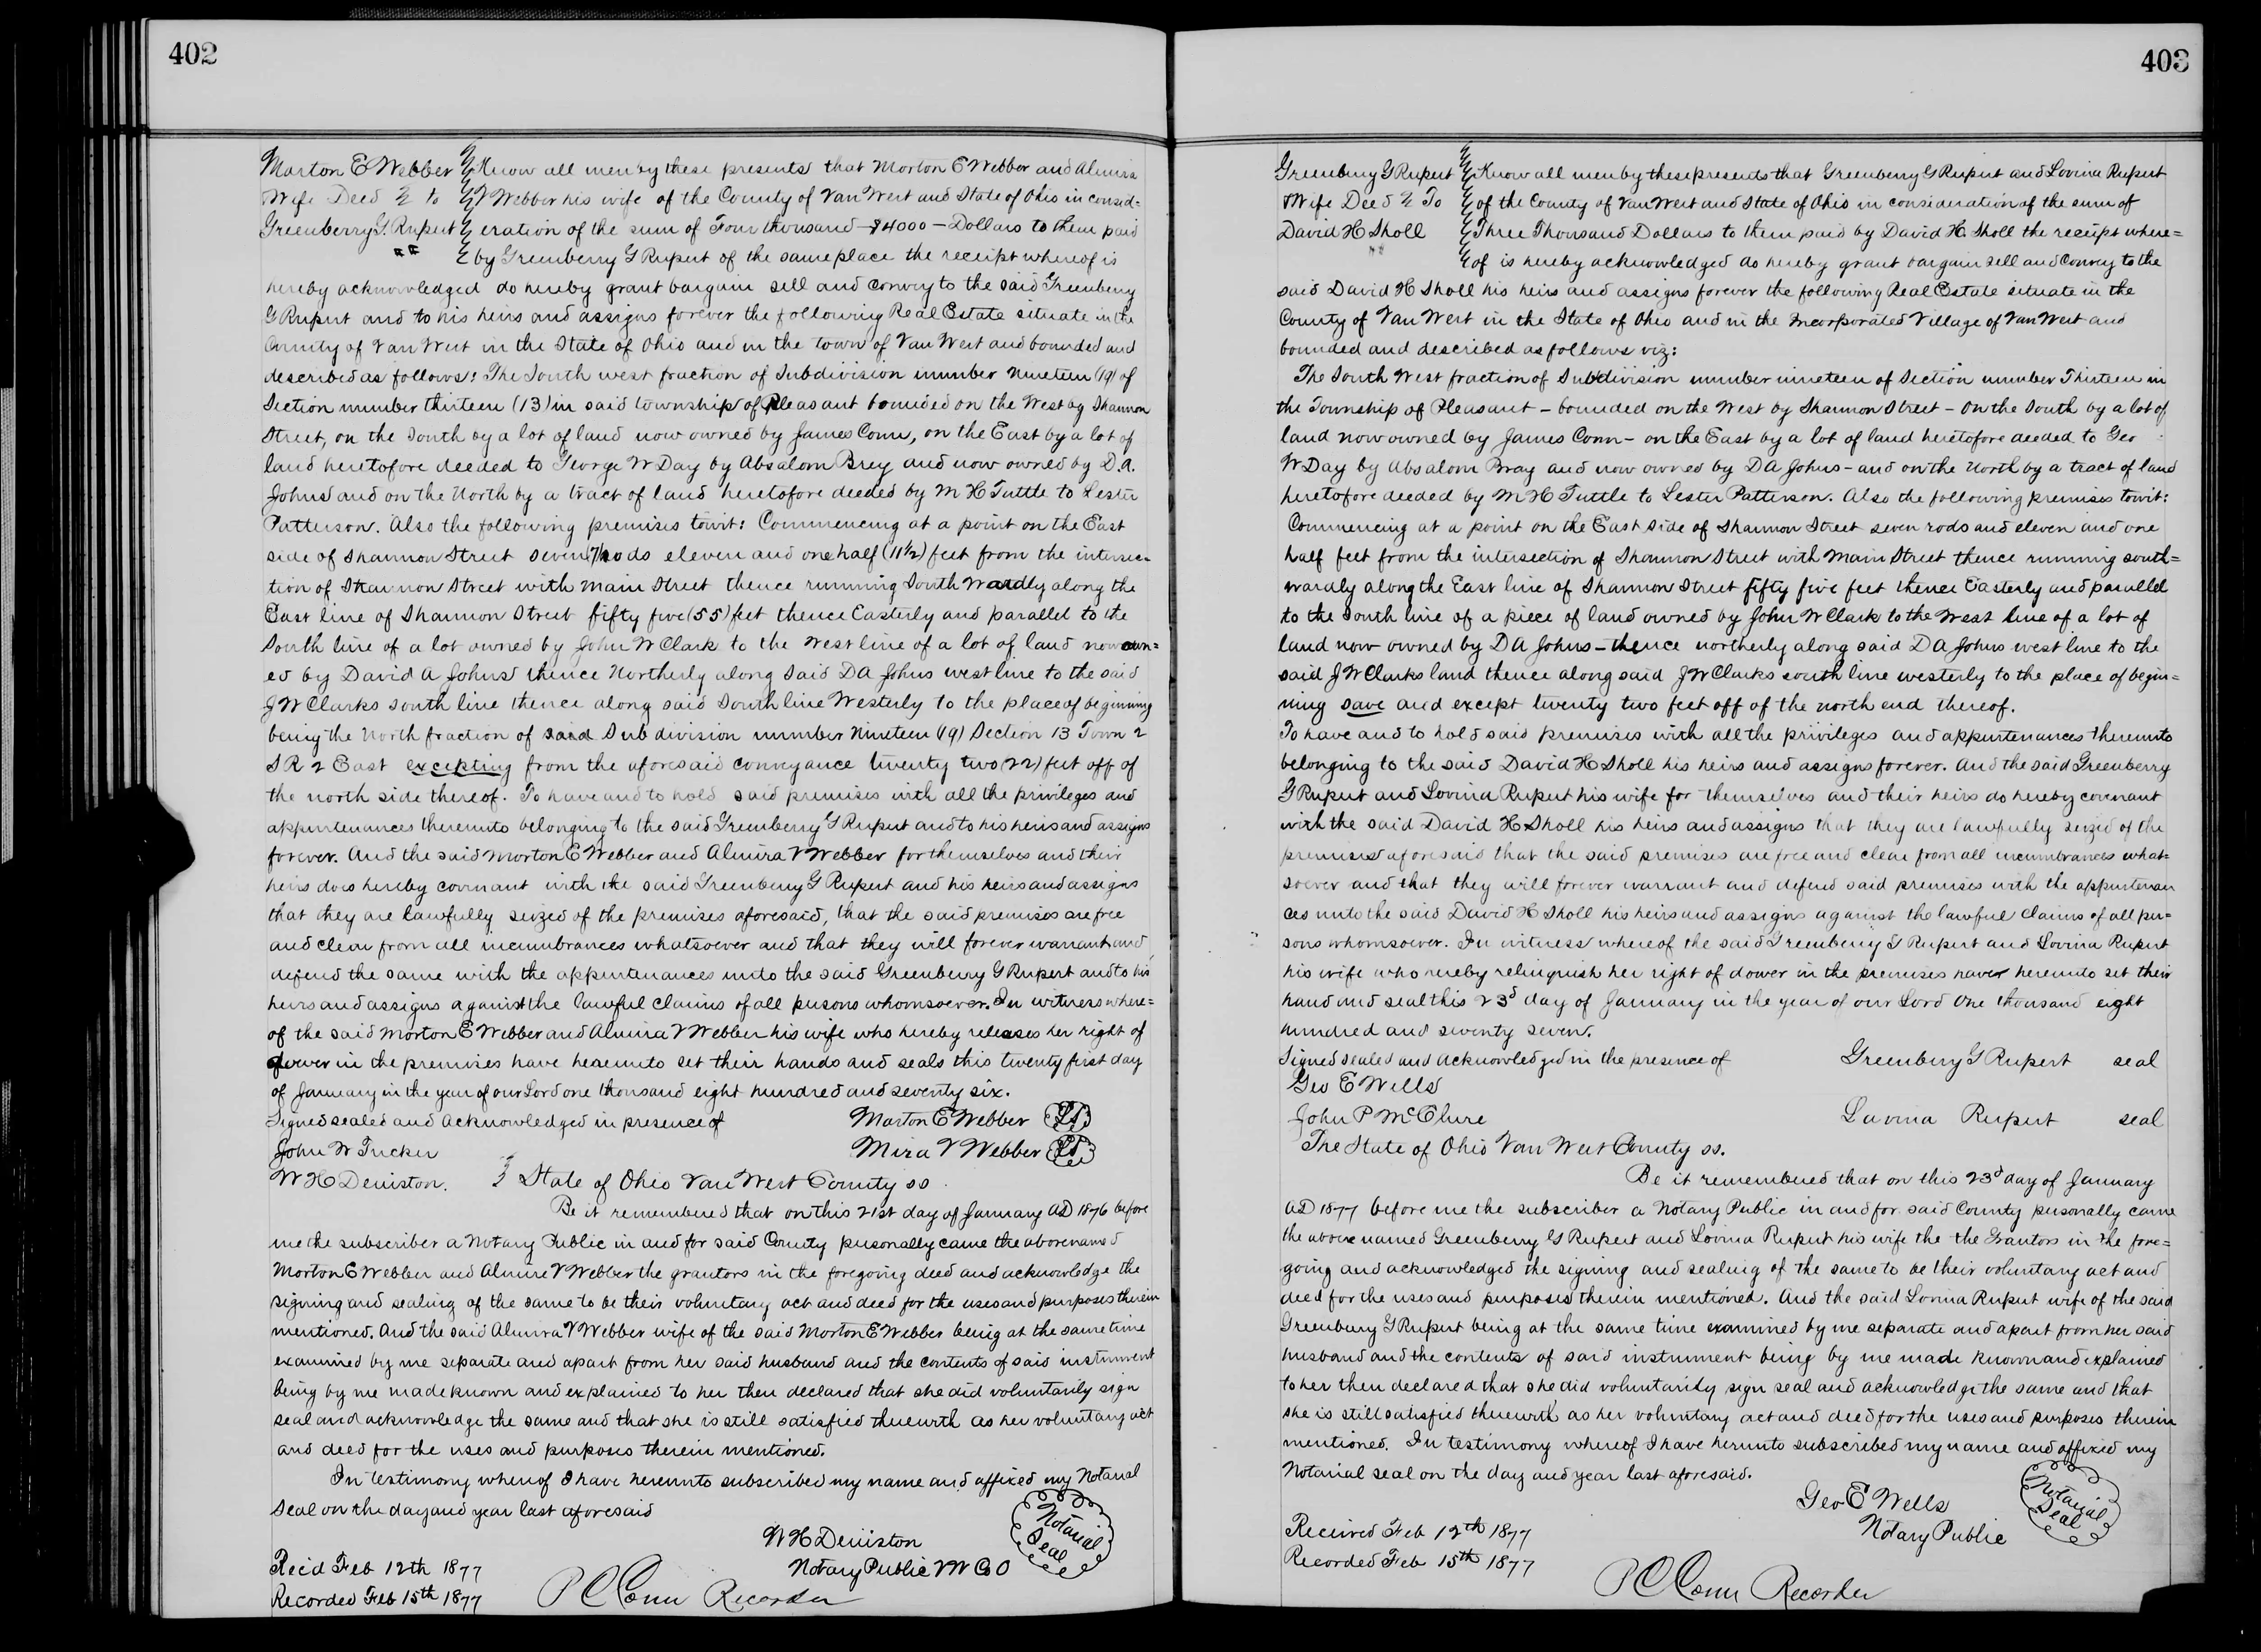 402
Morton E Webber Know all men by these presents that Morton E Webber and Almira
Wife Deed & to V Webber his wife of the County of Van Wert and State of Ohio in consid=
Greenberry G. Rupert eration of the sum of Four thousand - $4000 - Dollars to them paid
by Greenberry G Rupert of the same place the receipt whereof is
hereby acknowledged do hereby grant bargain sell and convey to the said Greenberry
G Rupert and to his heirs and assigns forever the following Real Estate situate in the
County of Van Wert in the State of Ohio and in the town of Van Wert and bounded and
described as follows: The South west fraction of Subdivision number Nineteen (19) of
Section number thirteen (13) in said township of Pleasant bounded on the West by Shannon
Street, on the South by a lot of land now owned by James Conn, on the East by a lot of
land heretofore deeded to George W Day by Absalom Brey and now owned by D.A.
Johns and on the North by a tract of land heretofore deeded by M H Tuttle to Lester
Patterson. Also the following premises towit: Commencing at a point on the East
side of Shannon Street seven (7) rods eleven and one half (11 1/2) feet from the intersec=
tion of Shannon Street with Main Street thence running South Wardly along the
East line of Shannon Street fifty five (55) feet thence Easterly and parallel to the
South line of a lot owned by John W Clark to the West line of a lot of land now own=
ed by David A Johns thence Northerly along said DA Johns west line to the said
J W Clarks South line thence along said South line Westerly to the place of beginning
being the North fraction of said Sub division number Nineteen (19) Section 13 Town 2
S R 2 East excepting from the aforesaid conveyance twenty two (22) feet off of
the north side thereof. To have and to hold said premises with all the privileges and
appurtenances thereunto belonging to the said Greenberry G Rupert and to his heirs and assigns
forever. And the said Morton E Webber and Almira V Webber for themselves and their
heirs does hereby covenant with the said Greenberry G Rupert and his heirs and assigns
that they are lawfully seized of the premises aforesaid, that the said premises are free
and clear from all incumbrances whatsoever and that they will forever warrant and
defend the same with the appurtenances unto the said Greenberry G Rupert and to his
heirs and assigns against the lawful claims of all persons whomsoever. In witness where=
of the said Morton E Webber and Almira V Webber his wife who hereby releases her right of
dower in the premises have hereunto set their hands and seals this twenty first day
of January in the year of our Lord one thousand eight hundred and seventy six.
Signed sealed and acknowledged in presence of Morton E Webber LS
John W Tucker Mira V Webber LS
W H Deniston. State of Ohio Van Wert County ss
Be it remembered that on this 21st day of January AD 1876 before
me the subscriber a Notary Public in and for said County personally came the above named
Morton E Webber and Almira V Webber the grantors in the foregoing deed and acknowledge the
signing and sealing of the same to be their voluntary act and deed for the uses and purposes therein
mentioned. And the said Almira V Webber wife of the said Morton E Webber being at the same time
examined by me separate and apart from her said husband and the contents of said instrument
being by me made known and explained to her then declared that she did voluntarily sign
seal and acknowledge the same and that she is still satisfied therewith as her voluntary act
and deed for the uses and purposes therein mentioned.
In testimony whereof I have hereunto subscribed my name and affixed my Notarial
Seal on the day and year last aforesaid
W H Deniston Notarial Seal
Rec'd Feb 12th 1877 Notary Public V W Co O
Recorded Feb 15th 1877 P C Conn Recorder
403
Greenberry G Rupert Know all men by these presents that Greenberry G Rupert and Lovina Rupert
Wife Deed & To of the County of Van Wert and State of Ohio in consideration of the sum of
David H Sholl Three Thousand Dollars to them paid by David H. Sholl the receipt where=
of is hereby acknowledged do hereby grant bargain sell and convey to the
said David H Sholl his heirs and assigns forever the following Real Estate situate in the
County of Van Wert in the State of Ohio and in the Incorporated Village of Van Wert and
bounded and described as follows viz:
The South West fraction of Subdivision number nineteen of Section number Thirteen in
the Township of Pleasant - bounded on the West by Shannon Street - on the South by a lot of
land now owned by James Conn - on the East by a lot of land heretofore deeded to Geo
W Day by Absalom Bray and now owned by DA Johns - and on the North by a tract of land
heretofore deeded by M H Tuttle to Lester Patterson. Also the following premises towit:
Commencing at a point on the East side of Shannon Street seven rods and eleven and one
half feet from the intersection of Shannon Street with Main Street thence running south=
wardly along the East line of Shannon Street fifty five feet thence Easterly and parallel
to the South line of a piece of land owned by John W Clark to the West line of a lot of
land now owned by DA Johns - thence northerly along said DA Johns west line to the
said J W Clarks land thence along said J W Clarks south line westerly to the place of begin=
ning save and except twenty two feet off of the north end thereof.
To have and to hold said premises with all the privileges and appurtenances thereunto
belonging to the said David H Sholl his heirs and assigns forever. And the said Greenberry
G Rupert and Lovina Rupert his wife for themselves and their heirs do hereby covenant
with the said David H Sholl his heirs and assigns that they are lawfully seized of the
premises aforesaid that the said premises are free and clear from all incumbrances what=
soever and that they will forever warrant and defend said premises with the appurtenan
ces unto the said David H Sholl his heirs and assigns against the lawful claims of all per=
sons whomsoever. In witness whereof the said Greenberry G Rupert and Lovina Rupert
his wife who hereby relinquish her right of dower in the premises have hereunto set their
hand and seal this 23d day of January in the year of our Lord One thousand eight
hundred and seventy seven.
Signed sealed and acknowledged in the presence of Greenberry G Rupert seal
Geo E Wells
John P McClure Lavina Rupert seal
The State of Ohio Van Wert County ss.
Be it remembered that on this 23d day of January
AD 1877 before me the subscriber a Notary Public in and for said County personally came
the above named Greenberry G Rupert and Lovina Rupert his wife the the Grantors in the fore=
going and acknowledged the signing and sealing of the same to be their voluntary act and
deed for the uses and purposes therein mentioned. And the said Lovina Rupert wife of the said
Greenberry G Rupert being at the same time examined by me separate and apart from her said
husband and the contents of said instrument being by me made known and explained
to her then declared that she did voluntarily sign seal and acknowledge the same and that
she is still satisfied therewith as her voluntary act and deed for the uses and purposes therein
mentioned. In testimony whereof I have herunto subscribed my name and affixed my
Notarial seal on the day and year last aforesaid.
Geo E Wells Notarial Seal
Received Feb 12th 1877 Notary Public
Recorded Feb 15th 1877
P C Conn Recorder